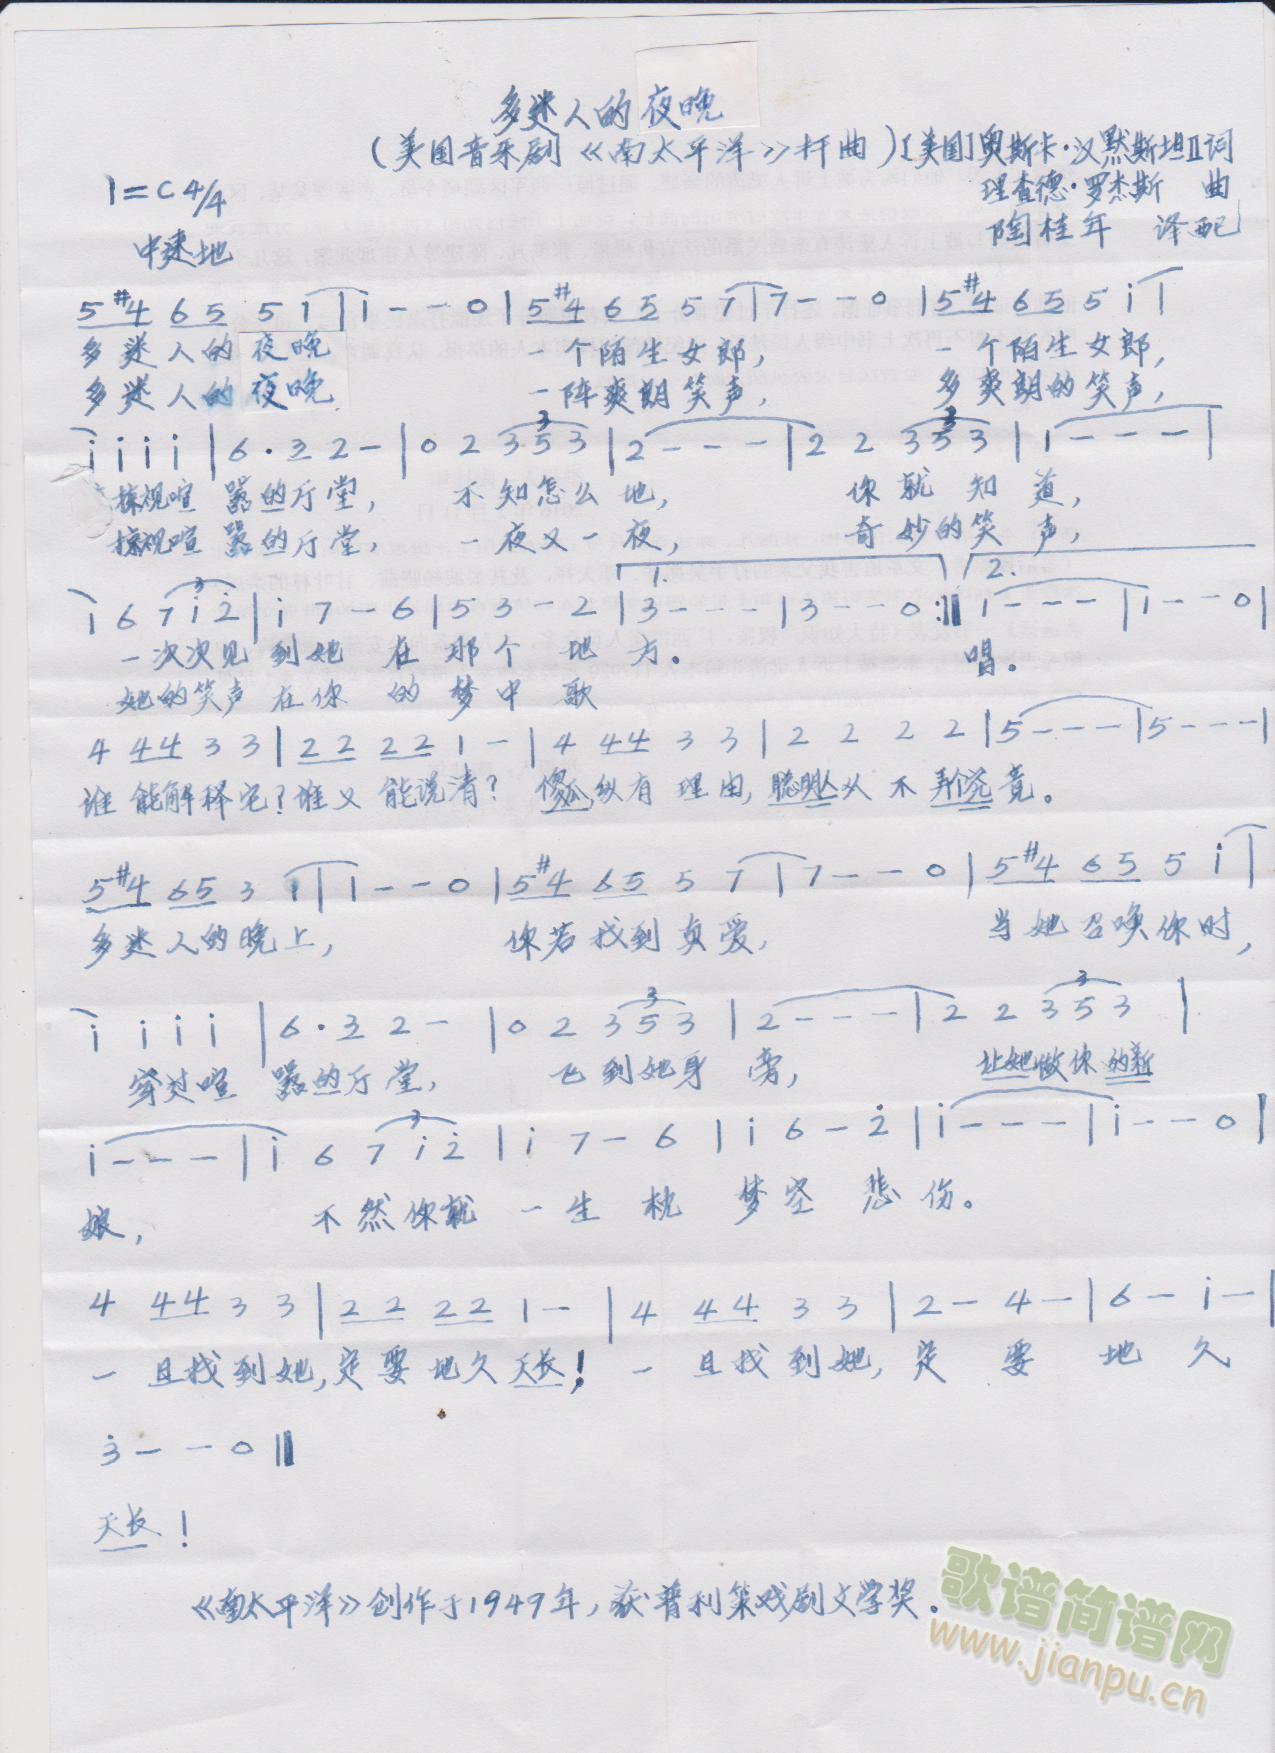 多迷人的夜晚
(美国音乐剧《南太平洋》插曲)[美国]奥斯卡·汉默斯坦Ⅱ词
1=C 4/4
理查德·罗杰斯 曲
陶桂年 译配
中速地
5 #4 6 5 5 1 | 1 - - 0 | 5 #4 6 5 5 7 | 7 - - 0 | 5 #4 6 5 5 i |
多迷人的夜晚 一个陌生女郎, 一个陌生女郎,
多迷人的夜晚 一阵爽朗笑声, 多爽朗的笑声,
i i i i | 6 · 3 2 - | 0 2 3 5 3 | 2 - - - | 2 2 3 5 3 | 1 - - - |
掠视喧嚣的厅堂, 不知怎么地, 你就知道,
掠视喧嚣的厅堂, 一夜又一夜, 奇妙的笑声,
1. 2.
i 6 7 i 2 | i 7 - 6 | 5 3 - 2 | 3 - - - | 3 - - 0 :‖ 1 - - - | 1 - - 0 |
一次次见到她在那个地方。 唱。
她的笑声在你的梦中歌
4 4 4 3 3 | 2 2 2 2 1 - | 4 4 4 3 3 | 2 2 2 2 | 5 - - - | 5 - - - |
谁能解释它?谁又能说清? 傻瓜纵有理由, 聪明人从不弄个究竟。
5 #4 6 5 3 1 | 1 - - 0 | 5 #4 6 5 5 7 | 7 - - 0 | 5 #4 6 5 5 i |
多迷人的晚上, 你若找到真爱, 当她召唤你时,
i i i i | 6 · 3 2 - | 0 2 3 5 3 | 2 - - - | 2 2 3 5 3 |
穿过喧嚣的厅堂, 飞到她身旁, 让她做你的新
i - - - | i 6 7 i 2 | i 7 - 6 | i 6 - 2 | i - - - | i - - 0 |
娘, 不然你就一生枕梦空悲伤。
4 4 4 3 3 | 2 2 2 2 1 - | 4 4 4 3 3 | 2 - 4 - | 6 - i - |
一旦找到她,定要地久天长! 一旦找到她, 定要地久
3 - - 0 ‖
天长!
《南太平洋》创作于1949年,获普利策戏剧文学奖.
歌谱简谱网
www.jianpu.cn